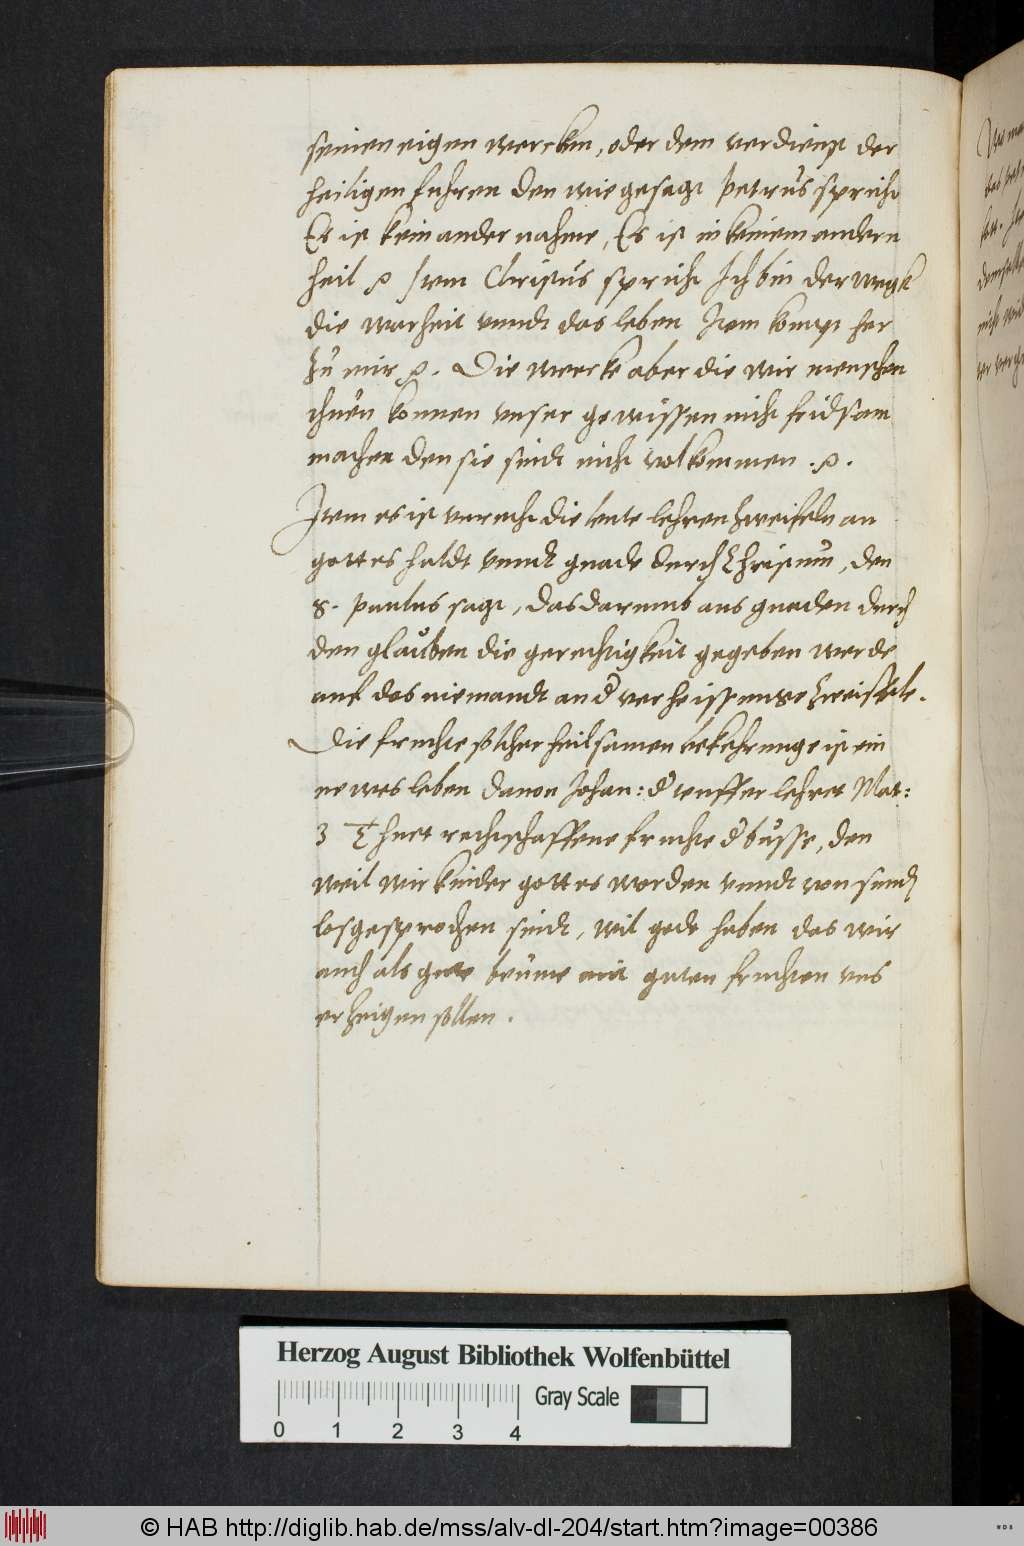 seinen eigen wercken, oder dem verdienst der
heiligen fuhren den wie gesagt Petrus spricht
Es ist kein ander nahme, Es ist in keinem andern
heil Item Christus spricht Ich bin der wegk
die warheit unndt das leben Item kompt her
zu mir Die wercke aber die wir menschen
thuen konnen unser gewissen nicht fridsam
machen den sie sindt nicht volkommen
Item es ist unrecht die leute lehren zweifeln an
gottes huldt unndt gnade durch Christum, den
S. Paulus sagt, das darumb aus gnaden durch
den glauben die gerechtigkeit gegeben werde
auf das niemandt an d verheissunge zweiffele.
Die fruchte solcher heilsamen bekehrunge ist ein
newes leben davon Johan: d teuffer lehret Mat:
3 Thuet rechtschaffene fruchte d busse, den
weil wir kinder gottes worden unndt von sund
losgesprochen sindt, wil gott haben das wir
auch als gute beume mit guten fruchten uns
erzeigen sollen.
Herzog August Bibliothek Wolfenbüttel
Gray Scale
0 1 2 3 4
© HAB http://diglib.hab.de/mss/alv-dl-204/start.htm?image=00386